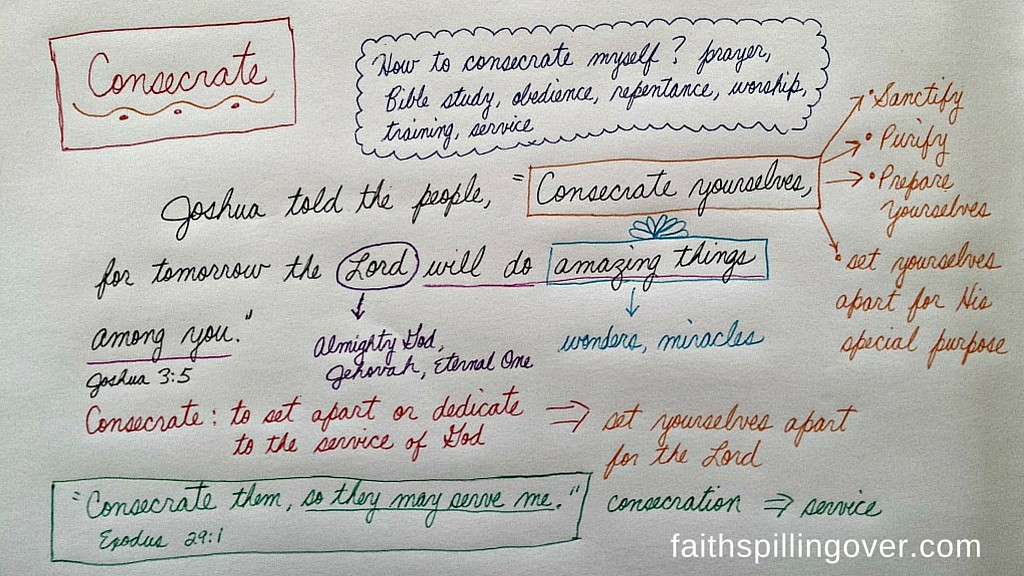 Consecrate
How to consecrate myself? prayer,
Bible study, obedience, repentance, worship,
training, service
Joshua told the people, "Consecrate yourselves,
for tomorrow the Lord will do amazing things
among you."
Joshua 3:5
• Sanctify
• Purify
• Prepare
yourselves
• set yourselves
apart for His
special purpose
Almighty God,
Jehovah, Eternal One
wonders, miracles
Consecrate: to set apart or dedicate
to the service of God
set yourselves apart
for the Lord
"Consecrate them, so they may serve me."
Exodus 29:1
consecration ⇒ service
faithspillingover.com